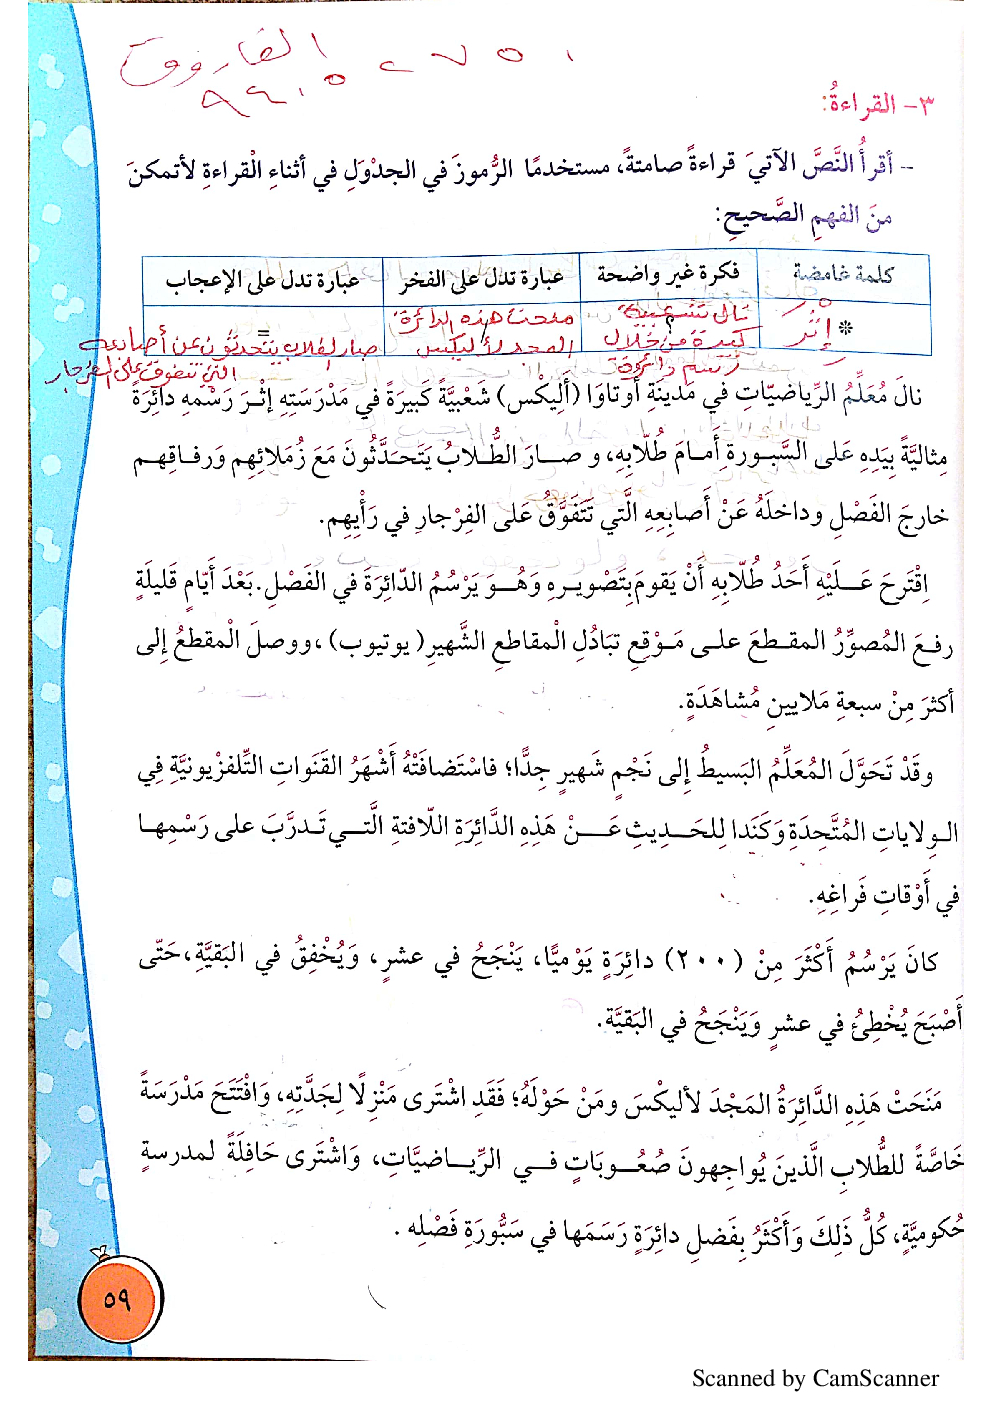 الفاروق ٢٧٥٠
٩٤٠٥
٣- القراءةُ:
- أقرأُ النَّصَّ الآتيَ قراءةً صامتةً، مستخدمًا الرُّموزَ في الجدْوَلِ في أثناءِ الْقراءةِ لأتمكنَ
منَ الفهمِ الصَّحيحِ:
كلمة غامضة | فكرة غير واضحة | عبارة تدل على الفخر | عبارة تدل على الإعجاب
* إثر | نال شعبية كبيرة من خلال رسم دائرة | منحت هذه الدائرة المجد لأليكس | صار الطلاب يتحدثون عن أصابعه التي تتفوق على الفرجار
نالَ مُعَلِّمُ الرِّياضيّاتِ في مَدينَةِ أُوتاوَا (أَلِيكْس) شَعْبِيَّةً كَبيرَةً في مَدْرَسَتِهِ إثْرَ رَسْمِهِ دائِرَةً
مِثاليَّةً بِيَدِهِ عَلى السَّبّورةِ أَمامَ طُلّابِهِ، و صارَ الطُّلابُ يَتَحَدَّثُونَ مَعَ زُمَلائِهم وَرِفاقِهم
خارجَ الفَصْلِ وداخلَهُ عَنْ أَصابِعِهِ الَّتي تَتَفَوَّقُ عَلى الفِرْجارِ في رَأْيِهِم.
اِقْتَرحَ عَلَيْهِ أَحَدُ طُلّابِهِ أَنْ يَقومَ بِتَصْويرِهِ وَهُوَ يَرْسُمُ الدّائِرَةَ في الفَصْلِ. بَعْدَ أَيّامٍ قَليلَةٍ
رفعَ المُصوِّرُ المقطعَ على مَوْقِعِ تبَادُلِ الْمقاطعِ الشَّهيرِ( يوتيوب) ،ووصلَ الْمقطعُ إلى
أكثرَ مِنْ سبعةِ مَلايينِ مُشاهَدَةٍ.
وقَدْ تَحَوَّلَ المُعَلِّمُ البَسيطُ إلى نَجْمٍ شَهيرٍ جِدًّا؛ فاسْتَضافَتْهُ أَشْهَرُ القَنَواتِ التِّلفزْيونيَّةِ فِي
الوِلاياتِ المُتَّحِدَةِ وَكَنَدا لِلحَديثِ عَنْ هَذِهِ الدَّائِرَةِ اللّافتةِ الَّتي تَدرَّبَ على رَسْمِها
في أَوْقاتِ فَراغِهِ.
كانَ يَرْسُمُ أَكْثَرَ مِنْ (٢٠٠) دائِرَةٍ يَوْميًّا، يَنْجَحُ في عشرٍ، وَيُخْفِقُ في البَقيَّةِ،حَتّى
أَصْبَحَ يُخْطِئُ في عشرٍ وَيَنْجَحُ في البَقيَّة.
مَنَحَتْ هَذِهِ الدَّائِرَةُ المَجْدَ لأليكْسَ ومَنْ حَوْلَهُ؛ فَقَدِ اشْتَرى مَنْزِلًا لِجَدَّتِهِ، وَافْتَتَحَ مَدْرَسَةً
خَاصَّةً للطُّلابِ الَّذينَ يُواجِهونَ صُعُوبَاتٍ في الرِّياضيَّاتِ، وَاشْتَرى حَافِلَةً لمدرسةٍ
حُكوميَّةٍ، كُلُّ ذَلِكَ وَأَكْثَرُ بِفَضلِ دائِرَةٍ رَسَمَها في سَبُّورَةِ فَصْلِه .
٥٩
Scanned by CamScanner